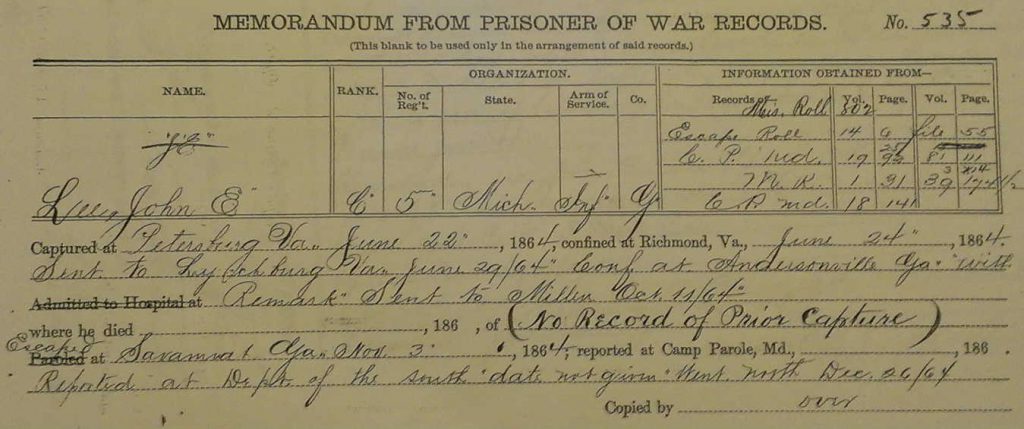 MEMORANDUM FROM PRISONER OF WAR RECORDS. No. 535
(This blank to be used only in the arrangement of said records.)
NAME. RANK. ORGANIZATION. INFORMATION OBTAINED FROM—
No. of Reg't. State. Arm of Service. Co. Records of Vol. Page. Vol. Page.
Mis. Roll 802
"J.E." Escape Roll 14 6 file 55
C. P. Md. 19 93 81 111
M. R. 1 31 39
Lee, John E" C" 5" Mich. Inf" G" C P Md. 18 141
Captured at Petersburg Va., June 22", 1864, confined at Richmond, Va., June 24", 1864.
Sent to Lynchburg Va. June 29/64" Conf at Andersonville Ga" with
Admitted to Hospital at Remark" Sent to Millen Oct 11/64"
where he died , 186 , of (No Record of Prior Capture)
Escaped
Paroled at Savannah Ga., Nov 3" , 1864; reported at Camp Parole, Md., , 186 .
Repated at Dept of the south "date not given" Went north Dec. 26/64
Copied by over